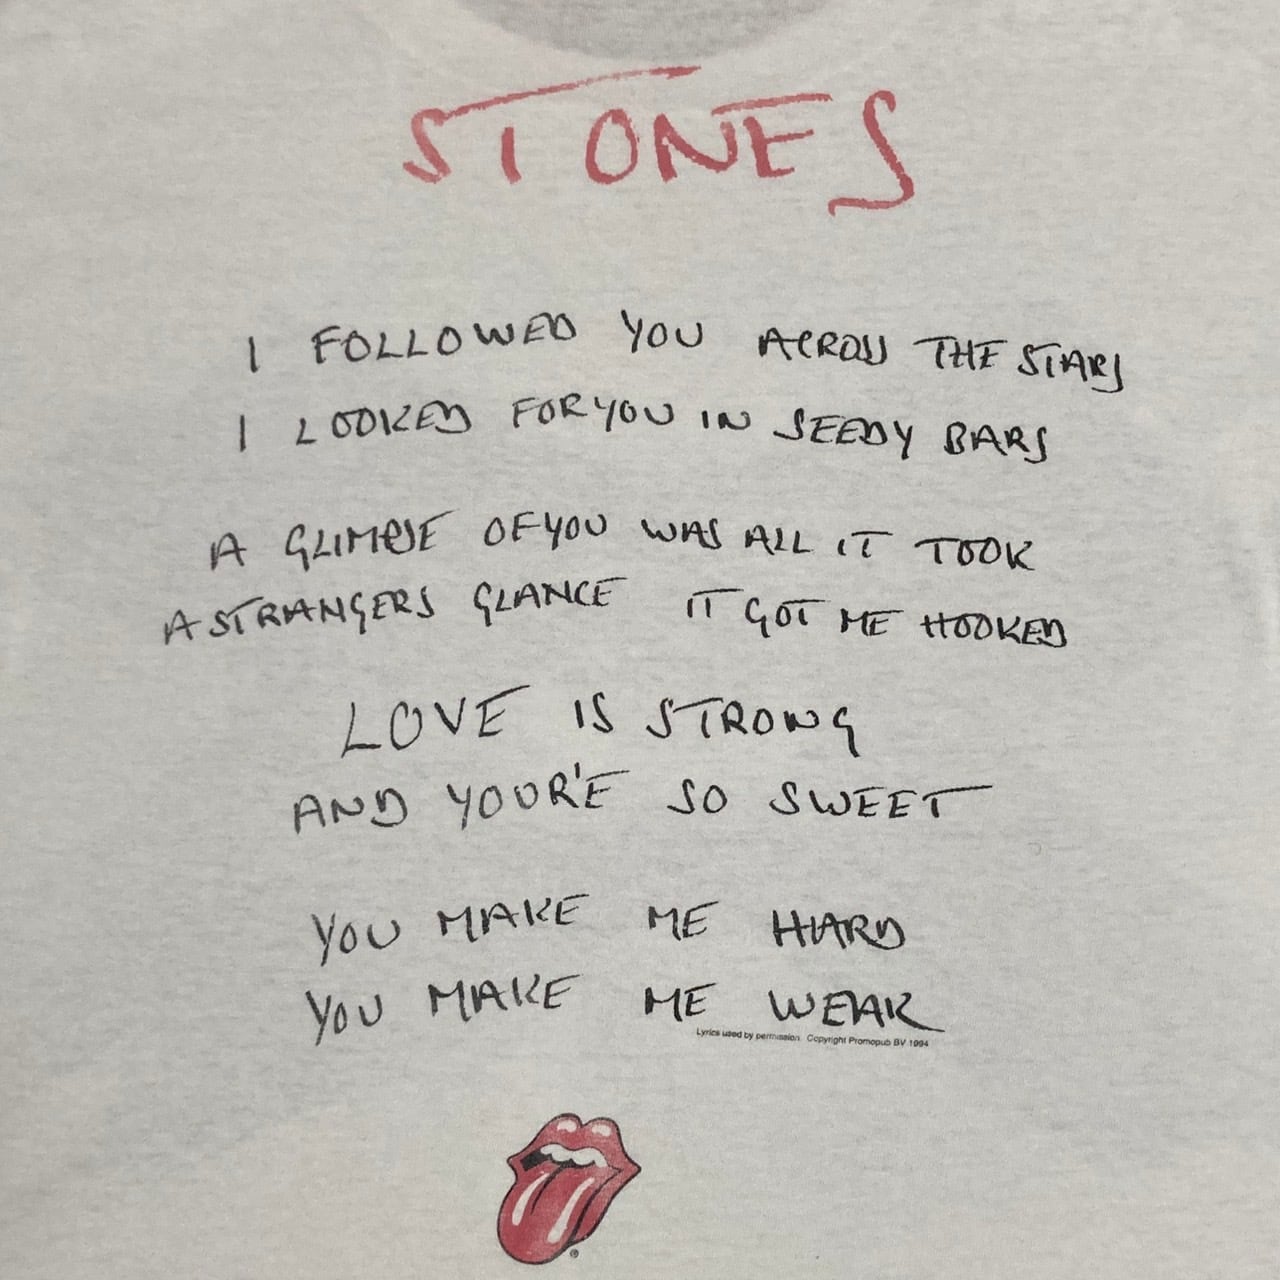 STONES
I FOLLOWED YOU ACROSS THE STARS
I LOOKED FOR YOU IN SEEDY BARS
A GLIMPSE OF YOU WAS ALL IT TOOK
A STRANGERS GLANCE IT GOT ME HOOKED
LOVE IS STRONG
AND YOUR'E SO SWEET
YOU MAKE ME HARD
YOU MAKE ME WEAK
Lyrics used by permission. Copyright Promopub BV 1994
®